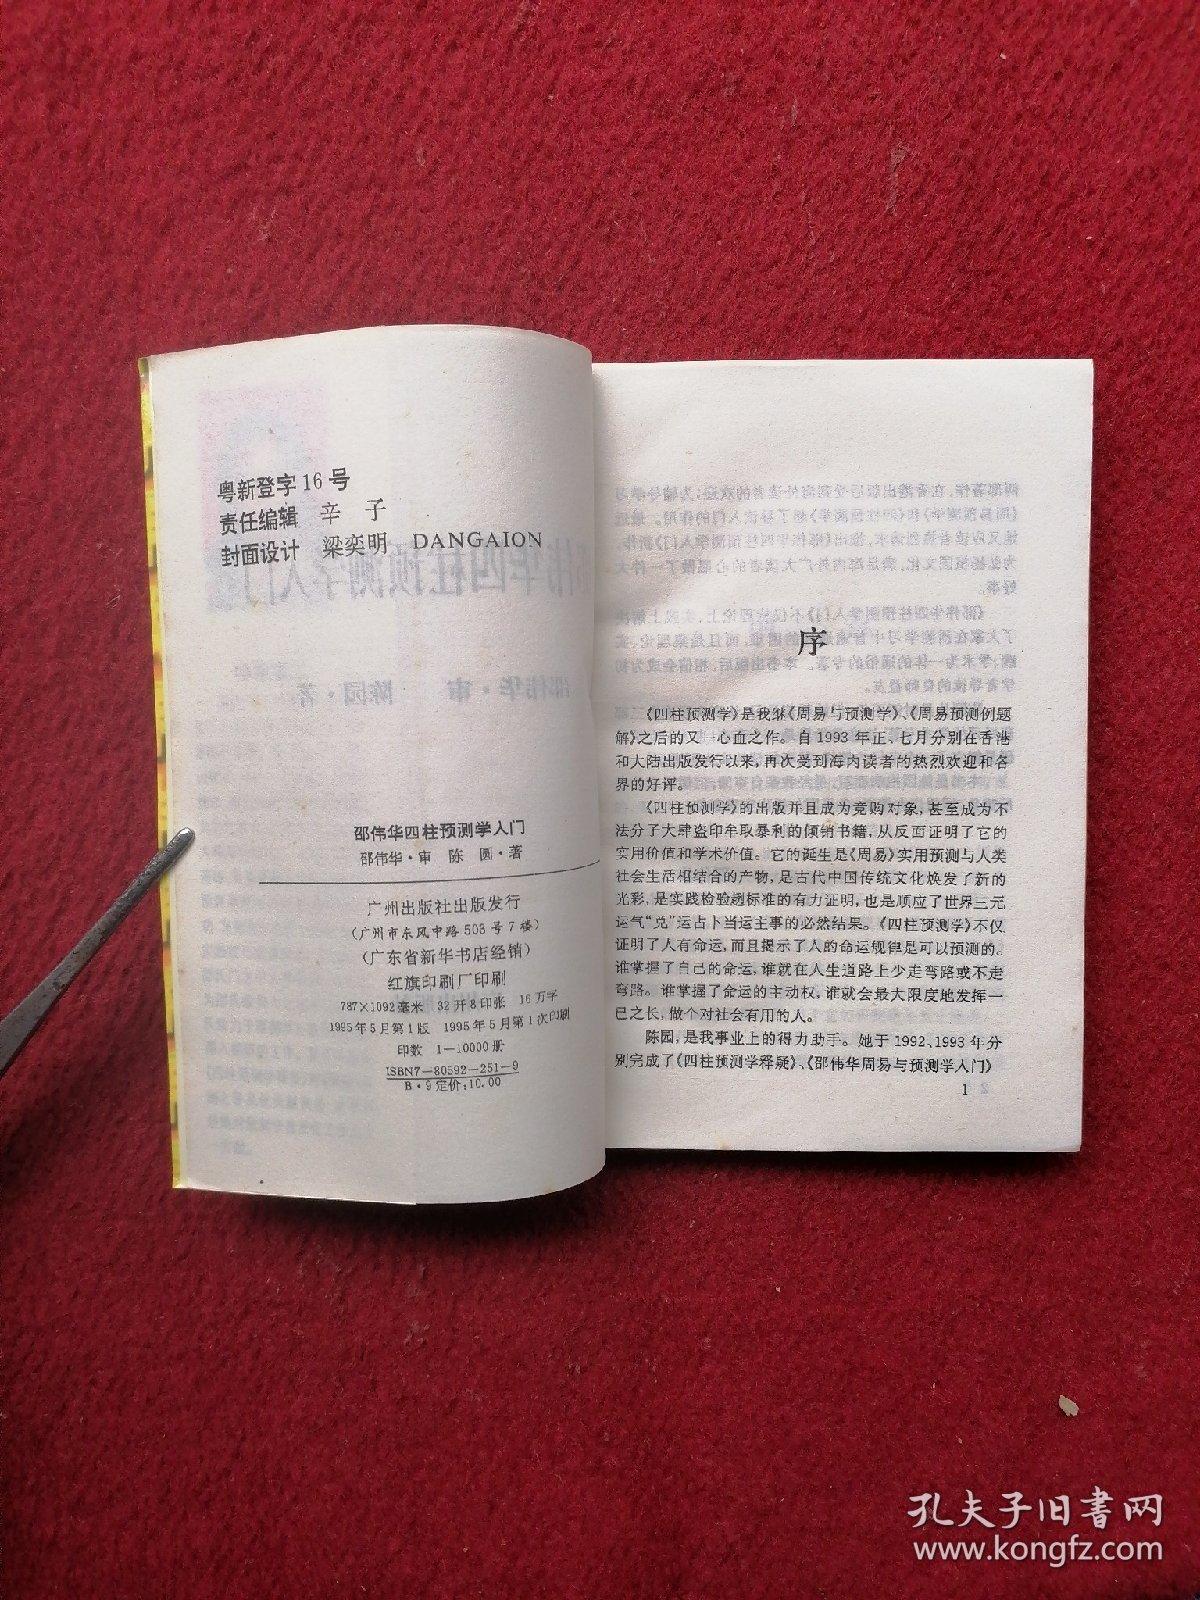 粤新登字16号
责任编辑 辛子
封面设计 梁奕明 DANGAION
邵伟华四柱预测学入门
邵伟华·审 陈圆·著
广州出版社出版发行
(广州市东风中路503号7楼)
(广东省新华书店经销)
红旗印刷厂印刷
787×1092毫米 32开8印张 16万字
1995年5月第1版 1995年5月第1次印刷
印数 1—10000册
ISBN7—80592—251—9
B·9定价:10.00
序
《四柱预测学》是我继《周易与预测学》、《周易预测例题
解》之后的又一心血之作。自1993年正、七月分别在香港
和大陆出版发行以来,再次受到海内读者的热烈欢迎和各
界的好评。
《四柱预测学》的出版并且成为竞购对象,甚至成为不
法分了大肆盗印牟取暴利的倾销书籍,从反面证明了它的
实用价值和学术价值。它的诞生是《周易》实用预测与人类
社会生活相结合的产物,是古代中国传统文化焕发了新的
光彩,是实践检验标准的有力证明,也是顺应了世界三元
运气“兑”运占卜当运主事的必然结果。《四柱预测学》不仅
证明了人有命运,而且揭示了人的命运规律是可以预测的。
谁掌握了自己的命运,谁就在人生道路上少走弯路或不走
弯路。谁掌握了命运的主动权,谁就会最大限度地发挥一
已之长,做个对社会有用的人。
陈园,是我事业上的得力助手。她于1992、1993年分
别完成了《四柱预测学释疑》、《邵伟华周易与预测学入门》
1
孔夫子旧书网
www.kongfz.com